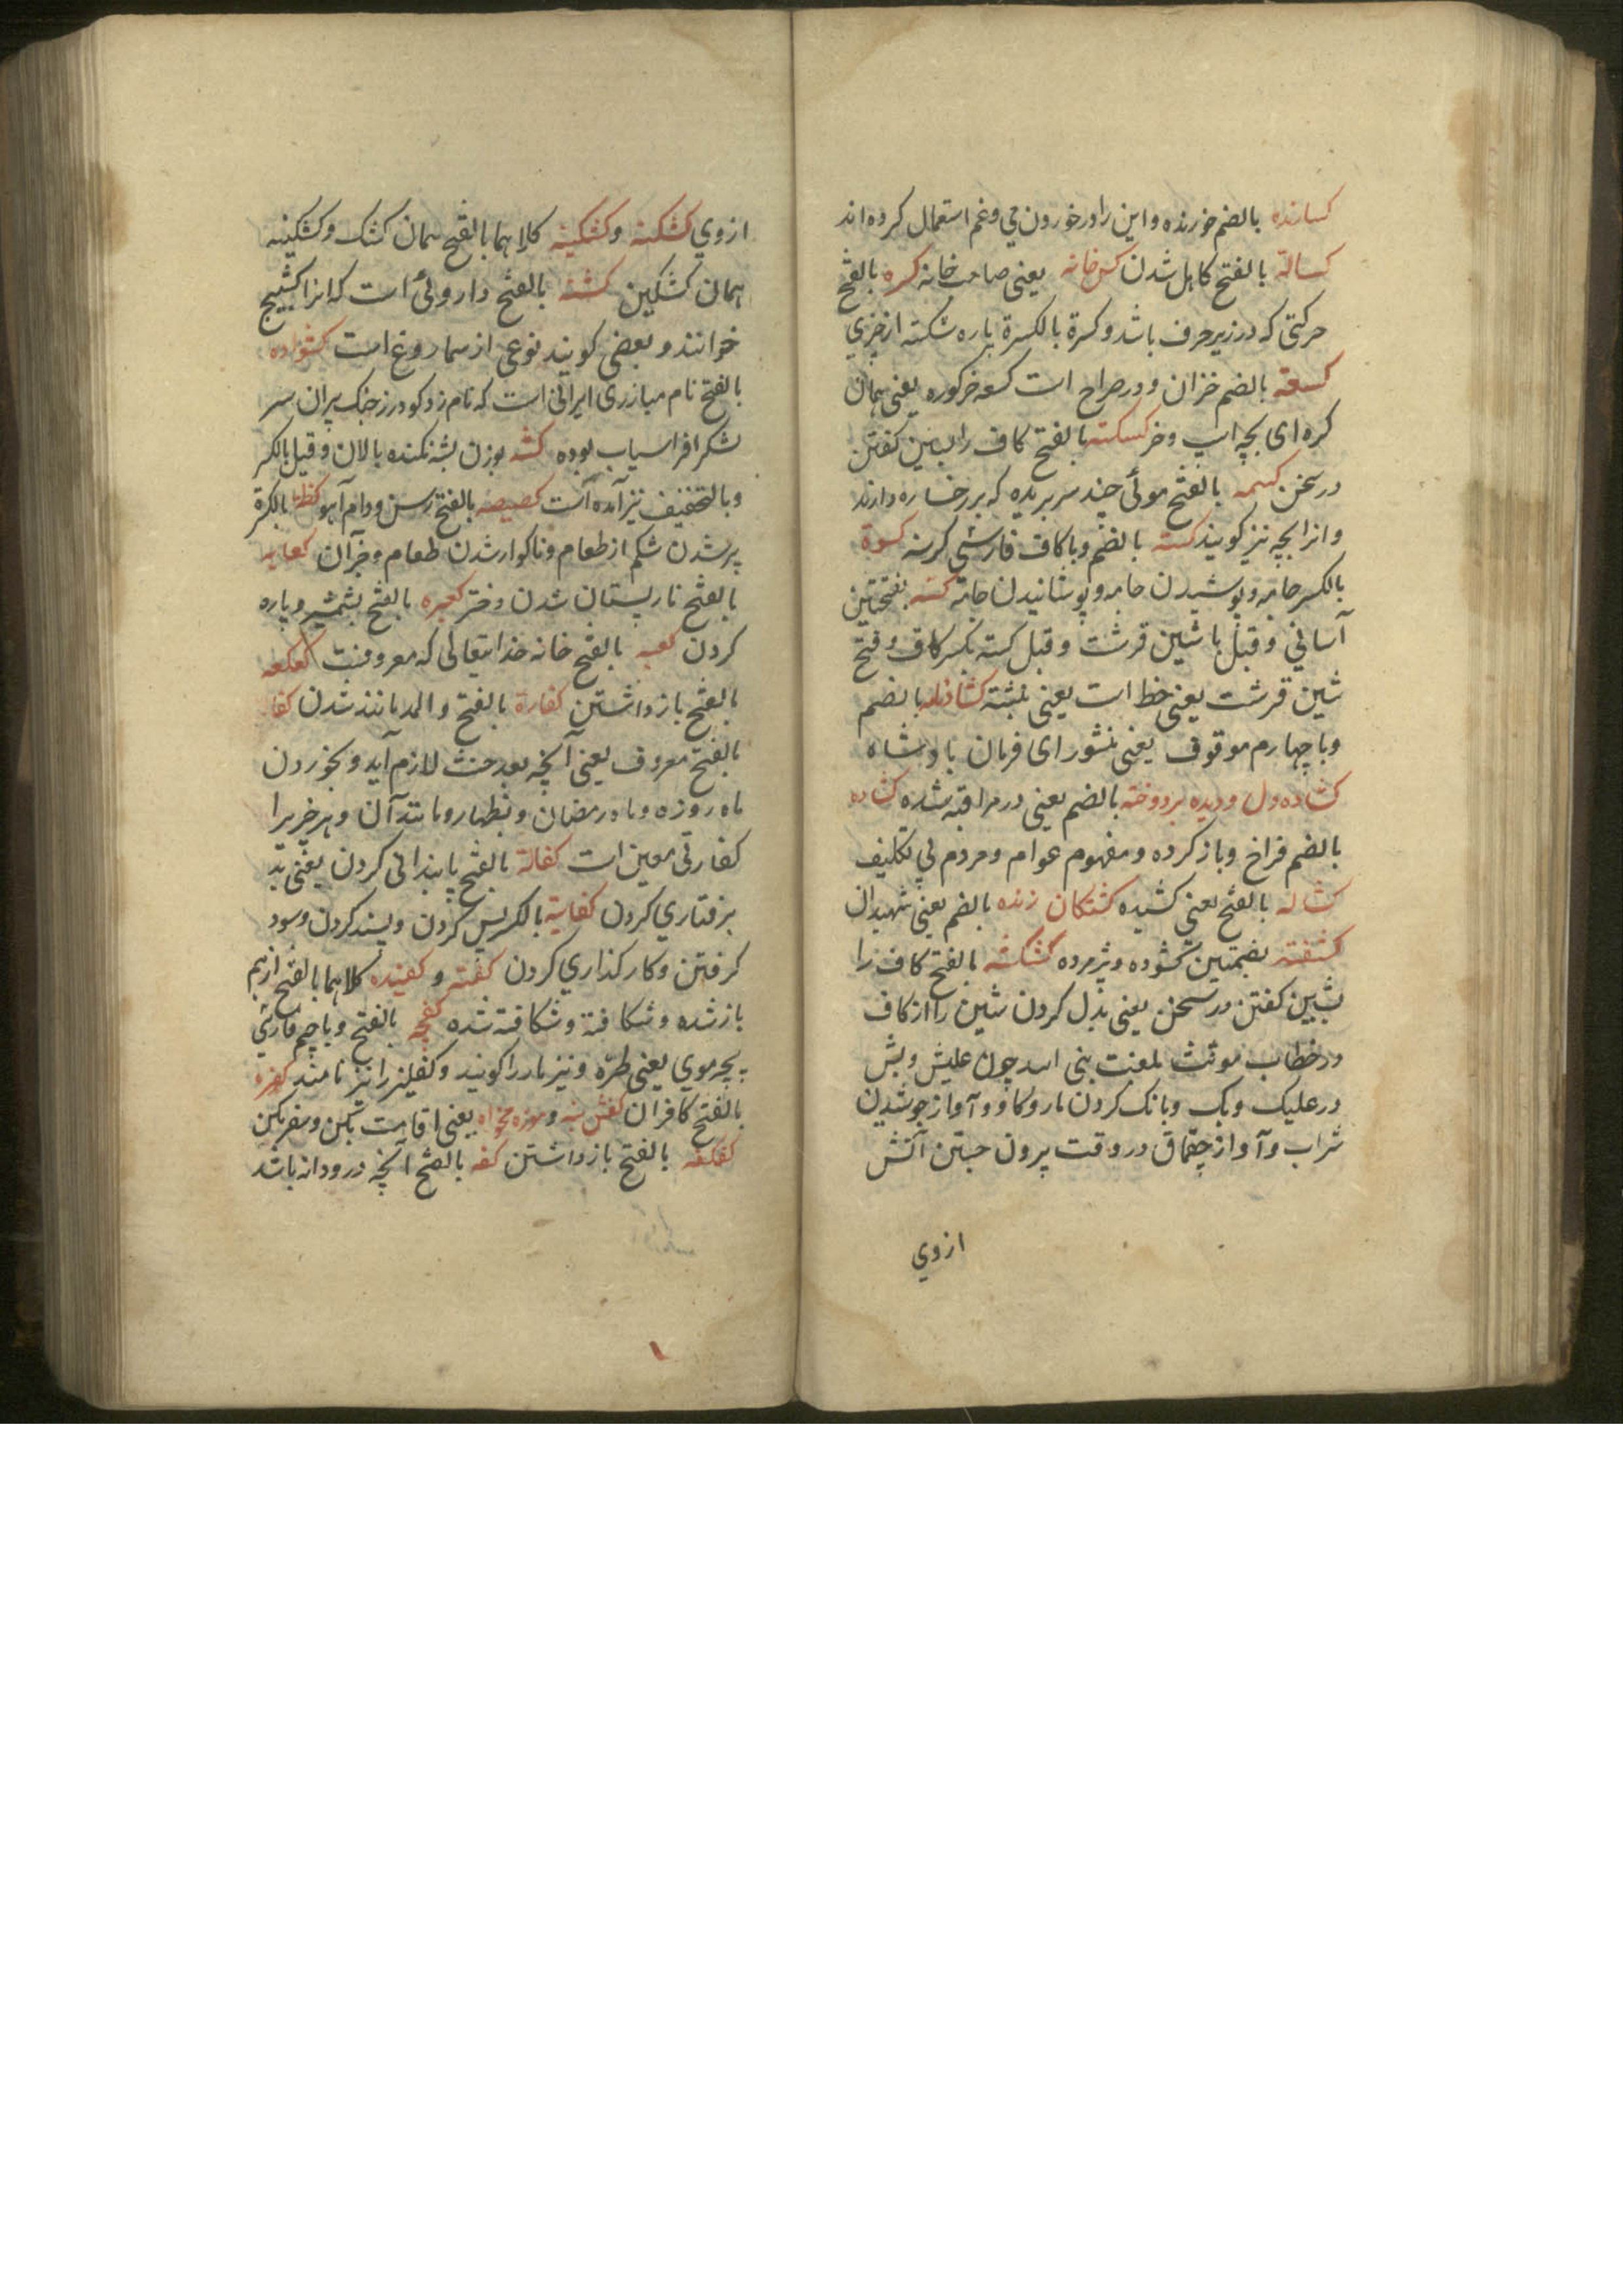 کسانده بالضم خورنده و این را در خوردن می و غم استعمال کرده اند
کسالة بالفتح کاهل شدن کس خانه یعنی صاحب خانه کسره بالفتح
حرکتی که در زیر حرف باشد و کسرة بالکسرة پاره شکسته از چیزی
کسعة بالضم خزان و در صراح است کسعه خرکوره یعنی همان
کره ای بچه اسپ و خر کسکسته بالفتح کاف را بسین کفتن
در سخن کسمه بالفتح موئی چند سر بریده که بر رخساره دارند
و انرا بچه نیز کویند کسنه بالضم و با کاف فارسی کرسنه کسوة
بالکسر جامه و پوشیدن جامه و پوشانیدن جامه کسه بفتحتین
آسانی و قیل با شین قرشت و قیل کسته بکسر کاف و فتح
شین قرشت یعنی خط است یعنی نبشته کشادنامه بالضم
و با چهارم موقوف یعنی منشور ای فرمان بادشاه
کشاده دل و دیده بردوخته بالضم یعنی در مراقبه شده کشاده
بالضم فراخ و باز کرده و مفهوم عوام و مردم بی تکلیف
کشاله بالفتح یعنی کشیده کشتکان زنده بالضم یعنی شهیدان
کشفته بضمتین کشوده و پژمرده کشکشه بالفتح کاف را
بشین کفتن در سخن یعنی بدل کردن شین را از کاف
در خطاب مونث بلغت بنی اسد چون علیش و بش
در علیک و بک و بانک کردن مار و کاو و آواز جوشیدن
شراب و آواز چقماق در وقت بیرون جستن آتش
ازوی
ازوی کشکنه و کشکینه کلاهما بالفتح همان کشک و کشکینه
همان کشکین کشنه بالفتح داروئی است که انرا کشیج
خوانند و بعضی کویند نوعی از سماروغ است کشواده
بالفتح نام مبارزی ایرانی است که نام زد کودرز جنک پیران سر
لشکر افراسیاب بوده کشه بوزن پشه بالان و قیل بالکسر
و بالتخفیف نیز آمده است کصیصه بالفتح رسن و دام آهو کظة بالکسرة
پر شدن شکم از طعام و ناکوار شدن طعام و جز آن کعابه
بالفتح نار پستان شدن دختر کعبره بالفتح بشمشیر پاره
کردن کعبه بالفتح خانه خدایتعالی که معروفست کعکعه
بالفتح باز داشتن کفاءة بالفتح والمد مانند شدن کفا
بالفتح معروف یعنی آنچه بعد حنث لازم آید و بخوردن
ماه روزه و ماه رمضان و بظهار و مانند آن و هر چیز را
کفارتی معین است کفالة بالفتح پایندانی کردن یعنی
پذرفتاری کردن کفایة بالکسر بس کردن و بسند کردن و سود
کرفتن و کارکذاری کردن کفته و کفیده کلاهما بالفتح از هم
باز شده و شکافته و شکافته شده کفچه بالفتح و با چیم فارسی
پچه موی یعنی طره و نیز مار را کویند و کفلیز را نیز نامند کفره
بالفتح کافران کفش بنه و موزه مخواه یعنی اقامت بکن و سفر مکن
کفکفه بالفتح باز داشتن کفه بالفتح آنچه در ودانه باشد